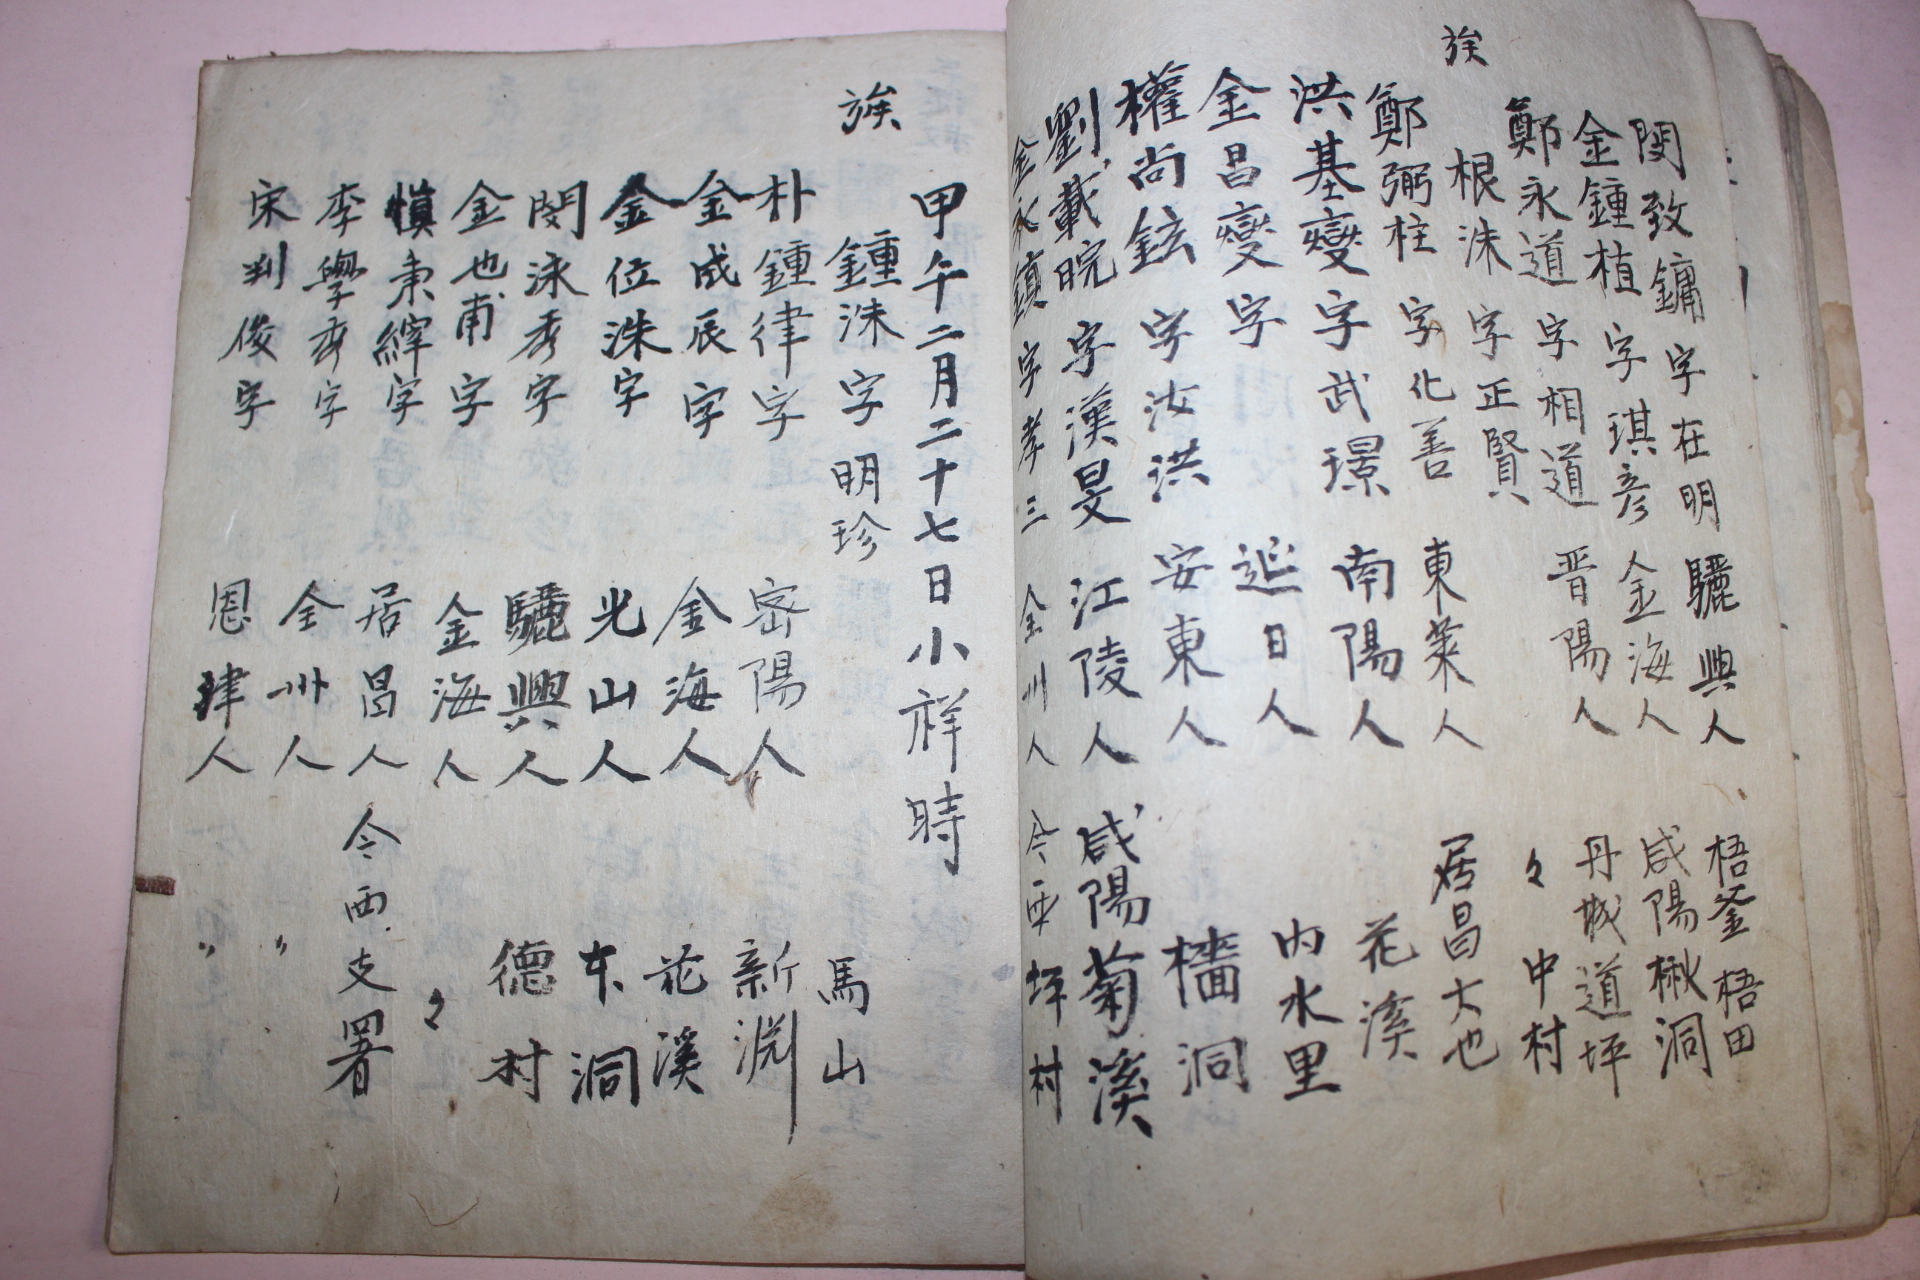 閔致鏞字在明 驪興人 梧釜梧田
金鍾植字琪彦 金海人 咸陽楸洞
鄭永道字相道 晋陽人 丹城道坪
族 根洙字正賢 々中村
鄭弼柱字化善 東萊人 居昌大也
洪基燮字武璟 南陽人 花溪
金昌燮字 延日人 內水里
權尚鉉字汝洪 安東人 檣洞
劉載晥字漢旻 江陵人 咸陽菊溪
金永鎮字孝三 全州人 今西坪村
甲午二月二十七日小祥時
族 鍾洙字明珍 馬山
朴鍾律字 密陽人 新淵
金成辰字 金海人 花溪
金位洙字 光山人 东洞
閔泳秀字 驪興人 德村
金也甫字 金海人 々
愼秉縡字 居昌人 今西支署
李學秀字 全州人 〃
宋判俊字 恩津人 〃